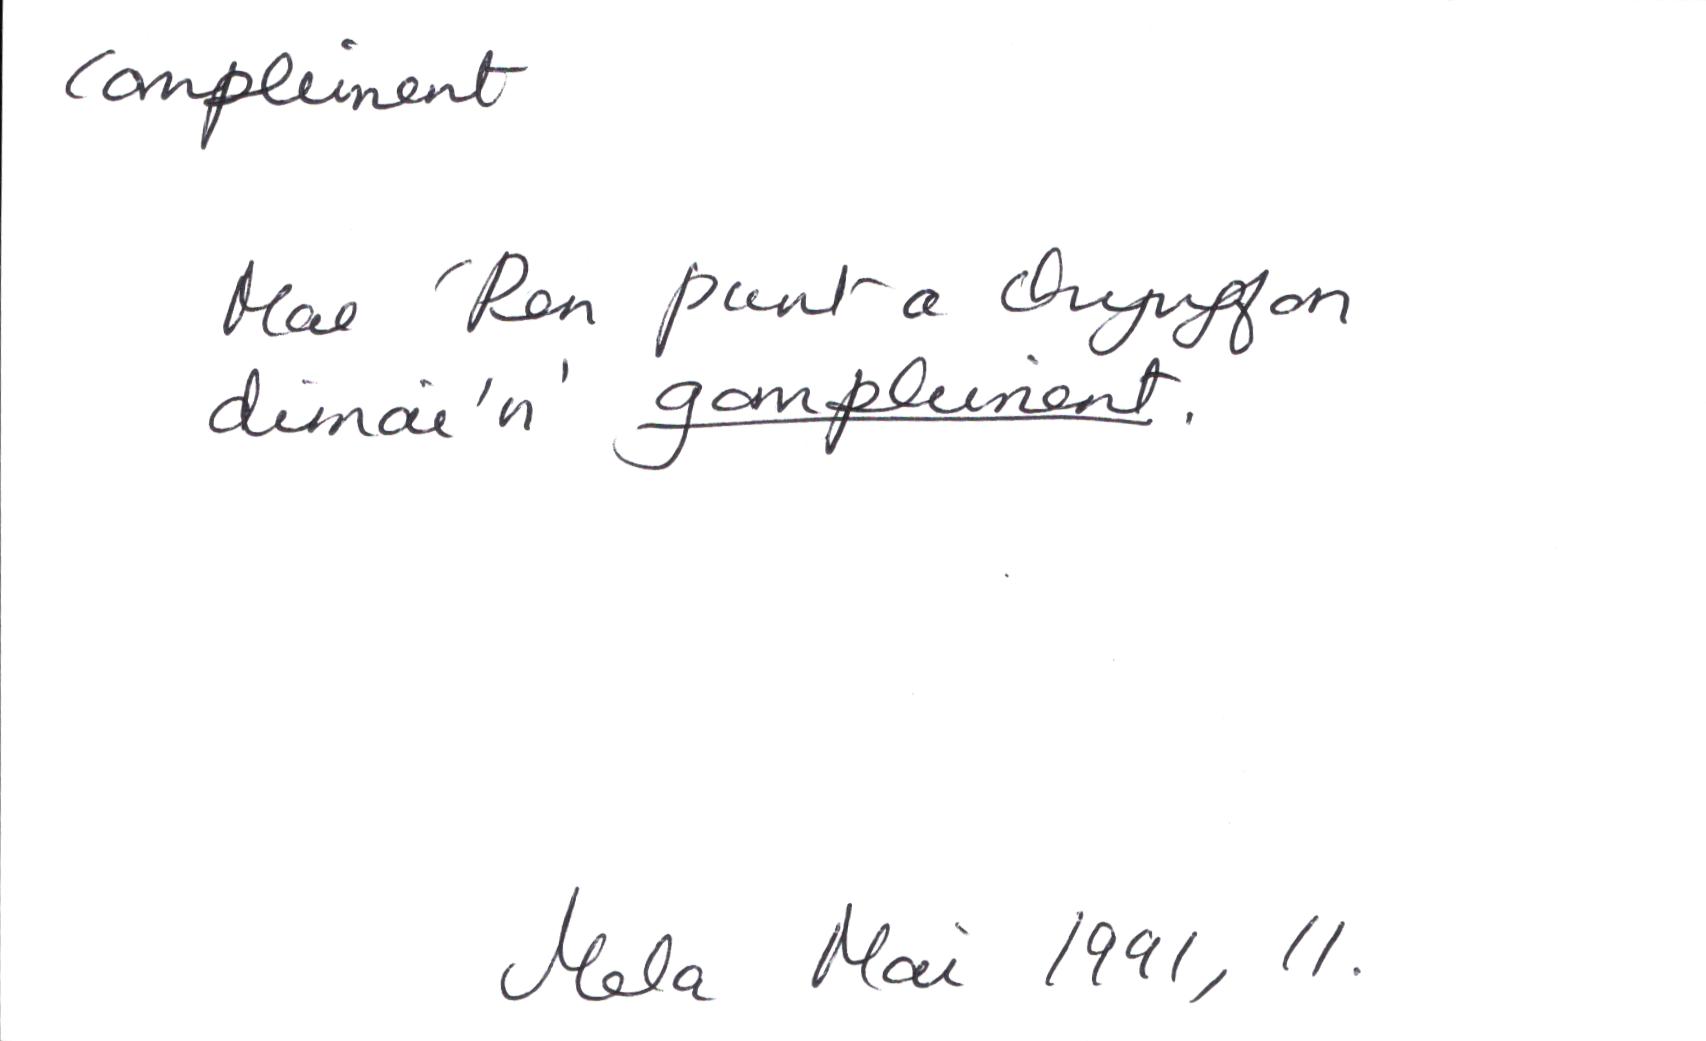 compleiment
Mae 'Ren punt a chwigffon
dimai 'n' gompleiment.
Mela Mai 1991, 11.